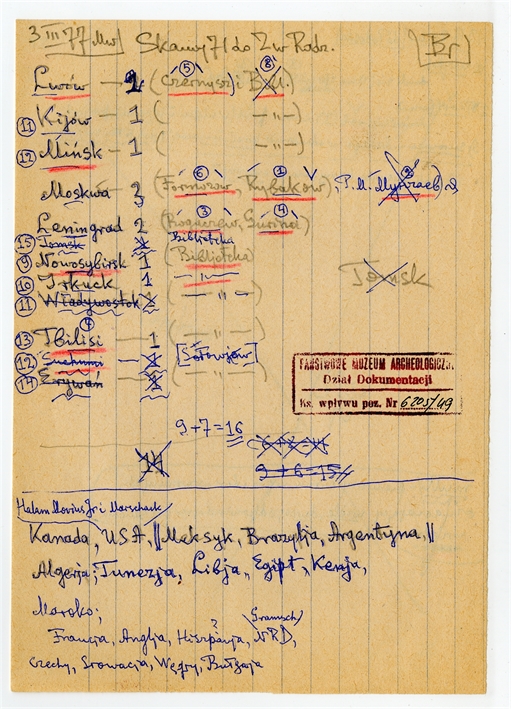 3 III 77 Skamy 71 do Zw Radz. Br
Lwów — 2 (5 Czernysz) i 8 B.M.)
11 Kijów — 1 ( — „ — )
12 Mińsk — 1 ( — „ — )
Moskwa 3 (6 Formozow, 1 Rybakow), P.M. 2
Leningrad 2 (3 4 Gurina)
15 Tomsk Biblioteka
9 Nowosybirsk 1 (Biblioteka)
10 Irkuck 1 — „ —
11 Władywostok ( — „ — )
Tomsk
13 Tbilisi — 1 ( — „ — )
12 Suchumi — [Sołowjow]
14 Erywań — ( — „ — )
PAŃSTWOWE MUZEUM ARCHEOLOGICZ.
Dział Dokumentacji
Ks. wpływu poz. Nr 6205/49
9+7=16
9+6=15
14
Halam Movius Jr i Marschack
Kanada, USA, || Meksyk, Brazylia, Argentyna, ||
Algeria; Tunezja, Libja, Egipt, Kenja,
Maroko;
Gramsch
Francja, Anglja, Hiszpanja, ? NRD,
Czechy, Słowacja, Węgry, Bułgaja